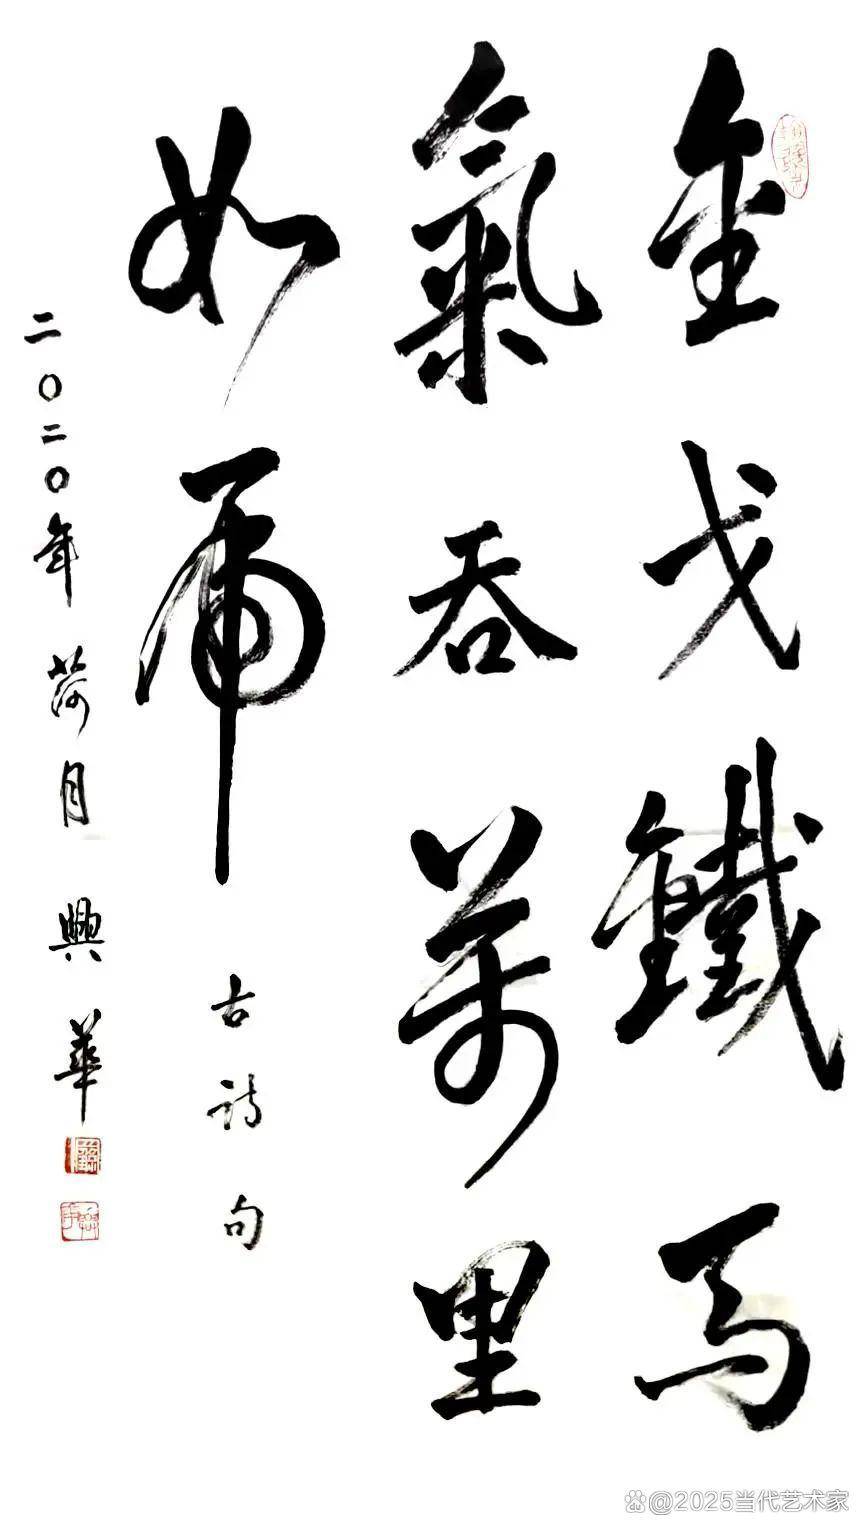 金戈鐵馬
氣吞萬里
如虎
古詩句
二〇二〇年荷月興華
@2025当代艺术家